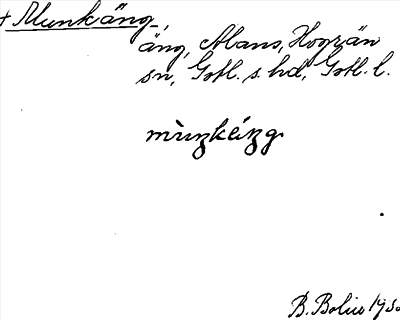 + Munkäng,
äng, Alans, Hogrän
sn, Gotl. s. hd, Gotl. l.
mùŋkéiŋg.
B. Bolin 1930